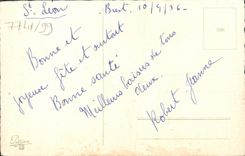 St Léon
Brest, 10/4/36 -
7741/99
Bonne et
joyeuse fête et surtout
Bonne santé
Meilleurs baisers de tous
deux
Robert Jeanne